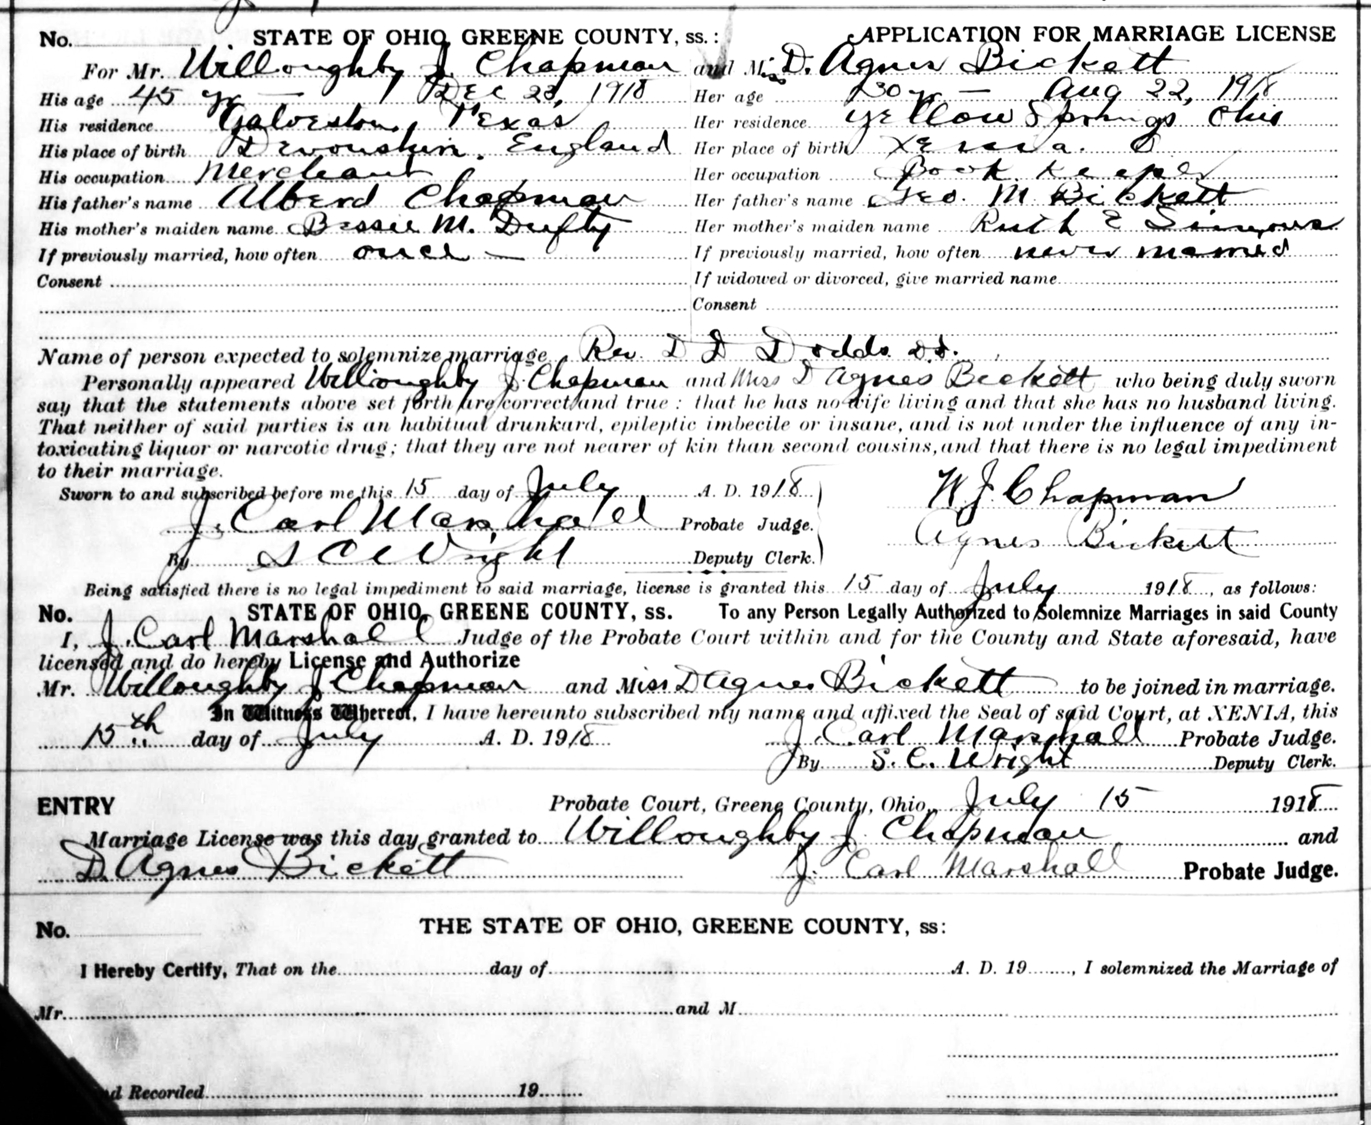 No. STATE OF OHIO GREENE COUNTY, ss.: APPLICATION FOR MARRIAGE LICENSE
For Mr. Willoughby J. Chapman and Miss D. Agnes Bickett
His age 45 yr — Dec 23, 1918 Her age 30 yr — Aug 22, 1918
His residence Galveston, Texas Her residence Yellow Springs Ohio
His place of birth Devonshire, England Her place of birth Xenia. O
His occupation Merchant Her occupation Book Keeper
His father's name Albert Chapman Her father's name Geo. M. Bickett
His mother's maiden name Bessie M. Her mother's maiden name Ruth E Simmons
If previously married, how often once — If previously married, how often never married
Consent If widowed or divorced, give married name
Consent
Name of person expected to solemnize marriage Rev. D D Dodds D.D.
Personally appeared Willoughby J. Chapman and Miss D Agnes Bickett who being duly sworn
say that the statements above set forth are correct and true: that he has no wife living and that she has no husband living.
That neither of said parties is an habitual drunkard, epileptic imbecile or insane, and is not under the influence of any in-
toxicating liquor or narcotic drug; that they are not nearer of kin than second cousins, and that there is no legal impediment
to their marriage.
Sworn to and subscribed before me this 15 day of July A. D. 1918 W J Chapman
J. Carl Marshall Probate Judge. Agnes Bickett
By S C Wright Deputy Clerk.
Being satisfied there is no legal impediment to said marriage, license is granted this 15 day of July 1918, as follows:
No. STATE OF OHIO, GREENE COUNTY, ss. To any Person Legally Authorized to Solemnize Marriages in said County
I, J. Carl Marshall Judge of the Probate Court within and for the County and State aforesaid, have
licensed and do hereby License and Authorize
Mr. Willoughby J. Chapman and Miss D Agnes Bickett to be joined in marriage.
In Witness Whereof, I have hereunto subscribed my name and affixed the Seal of said Court, at XENIA, this
15th day of July A. D. 1918 J. Carl Marshall Probate Judge.
By S. C. Wright Deputy Clerk.
ENTRY Probate Court, Greene County, Ohio, July 15 1918
Marriage License was this day granted to Willoughby J. Chapman and
D. Agnes Bickett J. Carl Marshall Probate Judge.
No. THE STATE OF OHIO, GREENE COUNTY, ss:
I Hereby Certify, That on the day of A. D. 19 , I solemnized the Marriage of
Mr. and M
nd Recorded 19